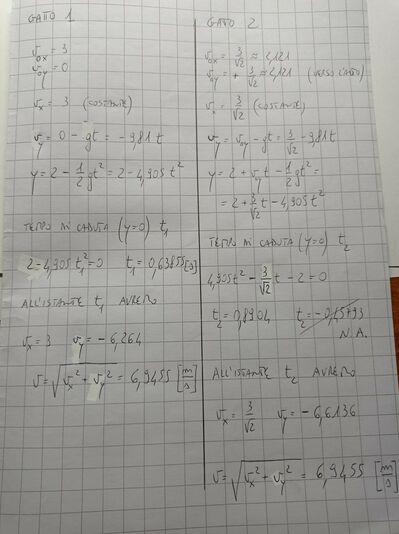 GATTO 1
v₀ₓ = 3
v₀y = 0
vₓ = 3 (COSTANTE)
vy = 0 - gt = -9,81t
y = 2 - 1/2 gt² = 2 - 4,905t²
TEMPO DI CADUTA (y=0) t₁
2 - 4,905t₁² = 0 t₁ = 0,63855 [s]
ALL'ISTANTE t₁ AVREMO
vₓ = 3 vy = -6,264
v = √(vₓ² + vy²) = 6,9455 [m/s]
GATTO 2
v₀ₓ = 3/√2 ≈ 2,121
v₀y = + 3/√2 ≈ 2,121 (VERSO L'ALTO)
vₓ = 3/√2 (COSTANTE)
vy = v₀y - gt = 3/√2 - 9,81t
y = 2 + vy t - 1/2 gt² =
= 2 + 3/√2 t - 4,905t²
TEMPO DI CADUTA (y=0) t₂
4,905t² - 3/√2 t - 2 = 0
t₂ = 0,8904 t₂ = -0,45793
N.A.
ALL'ISTANTE t₂ AVREMO
vₓ = 3/√2 vy = -6,6136
v = √(vₓ² + vy²) = 6,9455 [m/s]